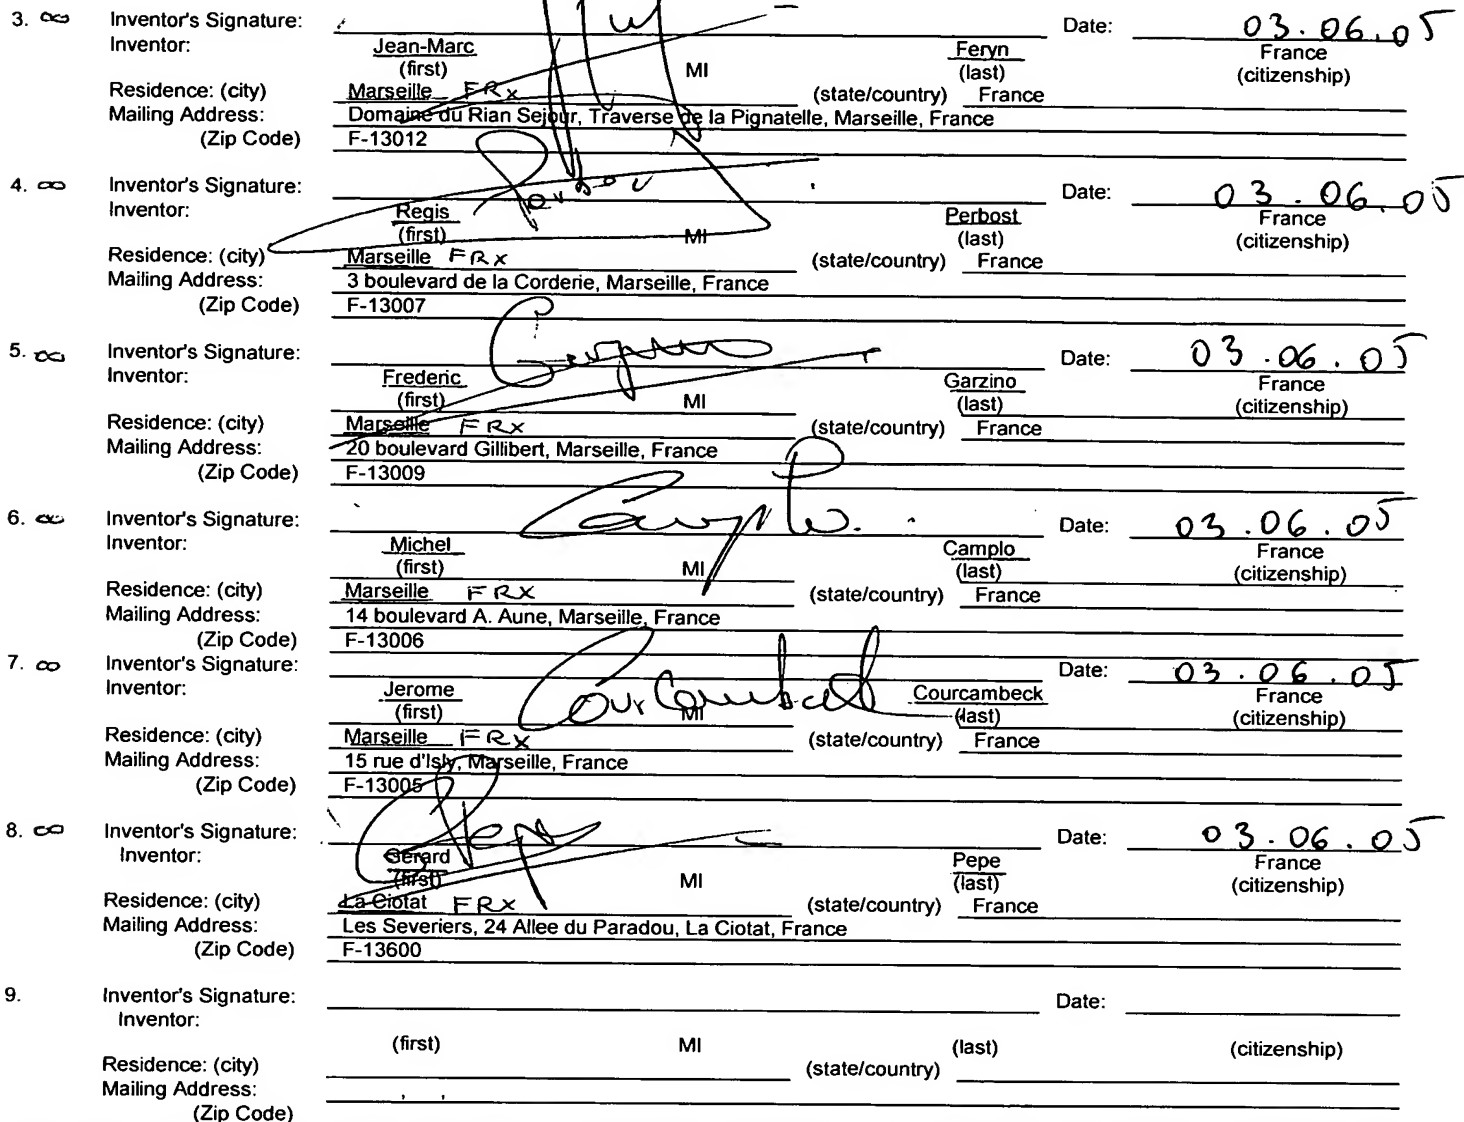 3. ∞ Inventor's Signature: Date: 03.06.05
Inventor: Jean-Marc Feryn France
(first) MI (last) (citizenship)
Residence: (city) Marseille FRX (state/country) France
Mailing Address: Domaine du Rian Sejour, Traverse de la Pignatelle, Marseille, France
(Zip Code) F-13012
4. ∞ Inventor's Signature: Date: 03.06.05
Inventor: Regis Perbost France
(first) MI (last) (citizenship)
Residence: (city) Marseille FRX (state/country) France
Mailing Address: 3 boulevard de la Corderie, Marseille, France
(Zip Code) F-13007
5. ∞ Inventor's Signature: Date: 03.06.05
Inventor: Frederic Garzino France
(first) MI (last) (citizenship)
Residence: (city) Marseille FRX (state/country) France
Mailing Address: 20 boulevard Gillibert, Marseille, France
(Zip Code) F-13009
6. ∞ Inventor's Signature: Camplo. Date: 03.06.05
Inventor: Michel Camplo France
(first) MI (last) (citizenship)
Residence: (city) Marseille FRX (state/country) France
Mailing Address: 14 boulevard A. Aune, Marseille, France
(Zip Code) F-13006
7. ∞ Inventor's Signature: Courcambeck Date: 03.06.05
Inventor: Jerome Courcambeck France
(first) MI (last) (citizenship)
Residence: (city) Marseille FRX (state/country) France
Mailing Address: 15 rue d'Isly, Marseille, France
(Zip Code) F-13005
8. ∞ Inventor's Signature: Date: 03.06.05
Inventor: Gerard Pepe France
(first) MI (last) (citizenship)
Residence: (city) La Ciotat FRX (state/country) France
Mailing Address: Les Severiers, 24 Allee du Paradou, La Ciotat, France
(Zip Code) F-13600
9. Inventor's Signature: Date:
Inventor:
(first) MI (last) (citizenship)
Residence: (city) (state/country)
Mailing Address:
(Zip Code)